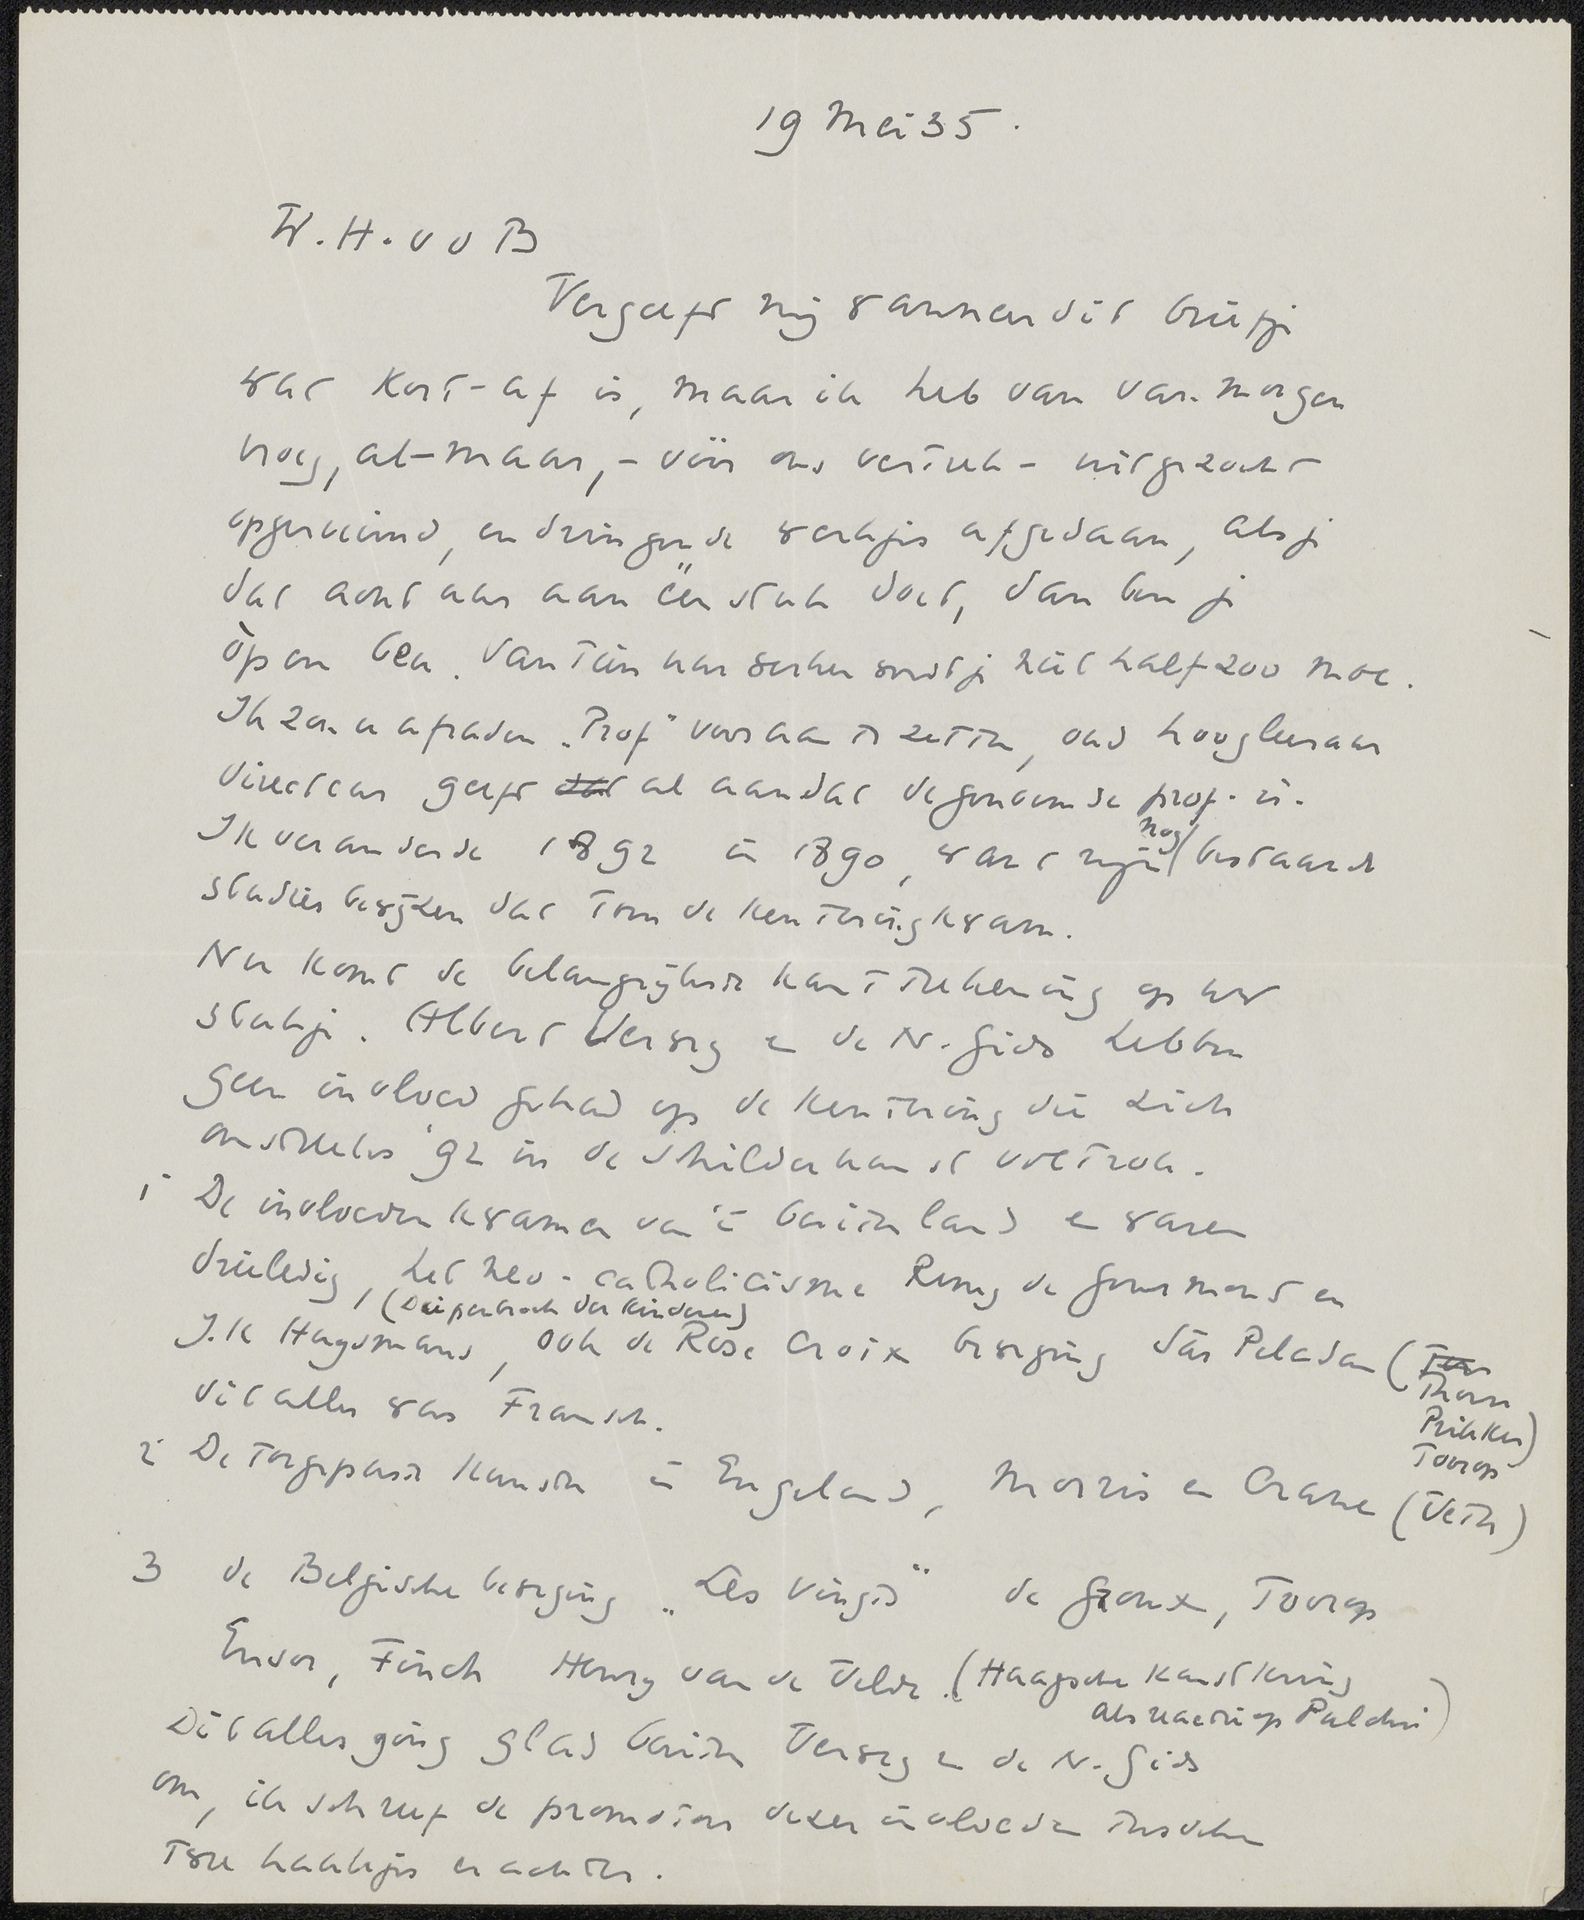 19 Mei 35.
W. H. v d B
Vergeeft mij wanneer dit briefje
wat kort-af is, maar ik heb van van-morgen
vroeg, al-maar, - vóór ons vertrek - uitgezocht
opgeruimd, en dringende werkjes afgedaan, als je
dat acht uur aan één stuk doet, dan ben je
óp en bek. Van tien uur werken word je niet half zoo moe.
Ik zou u afraden „Prof" vooraan te zetten, oud hoogleeraar
directeur geeft al aan dat de genoemde prof. is.
Ik veranderde 1892 in 1890, want mijn nog bestaande
studies bewijzen dat toen de kentering kwam.
Nu komt de belangrijkste kantteekening op uw
stukje. Albert Verwey en de N. Gids hebben
geen invloed gehad op de kentering die zich
omstreeks '92 in de schilderkunst voltrok.
1 De invloeden kwamen van 't buitenland en waren
drieledig, het neo-catholicisme Remy de Gourmont en
J.K Huysmans, (Diepenbrock der Kinderen) ook de Rose Croix beweging Sâr Peladan (
Thorn
Prikker)
Toorop
dit alles was Fransch.
2 De toegepaste kunsten in Engeland, Morris en Crane (Veth)
3 de Belgische beweging „Les Vingts" de Groux, Toorop
Ensor, Finch Henry van de Velde. (Haagsche Kunstkring
als reactie op Pulchri)
Dit alles ging glad buiten Verwey en de N. Gids
om, ik schreef de promotors dezer invloeden tusschen
twee haakjes er achter.